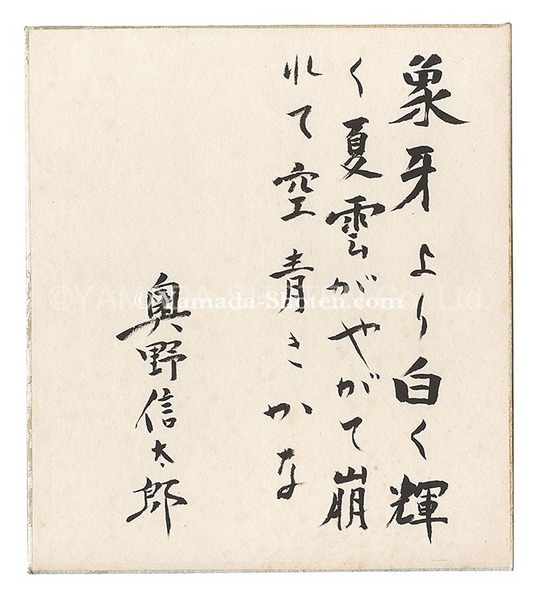 象牙より白く輝
く夏雲がやがて崩
れて空青きかな
奥野信太郎
©YAMADA SHOTEN Co., Ltd.
©Yamada-Shoten.com